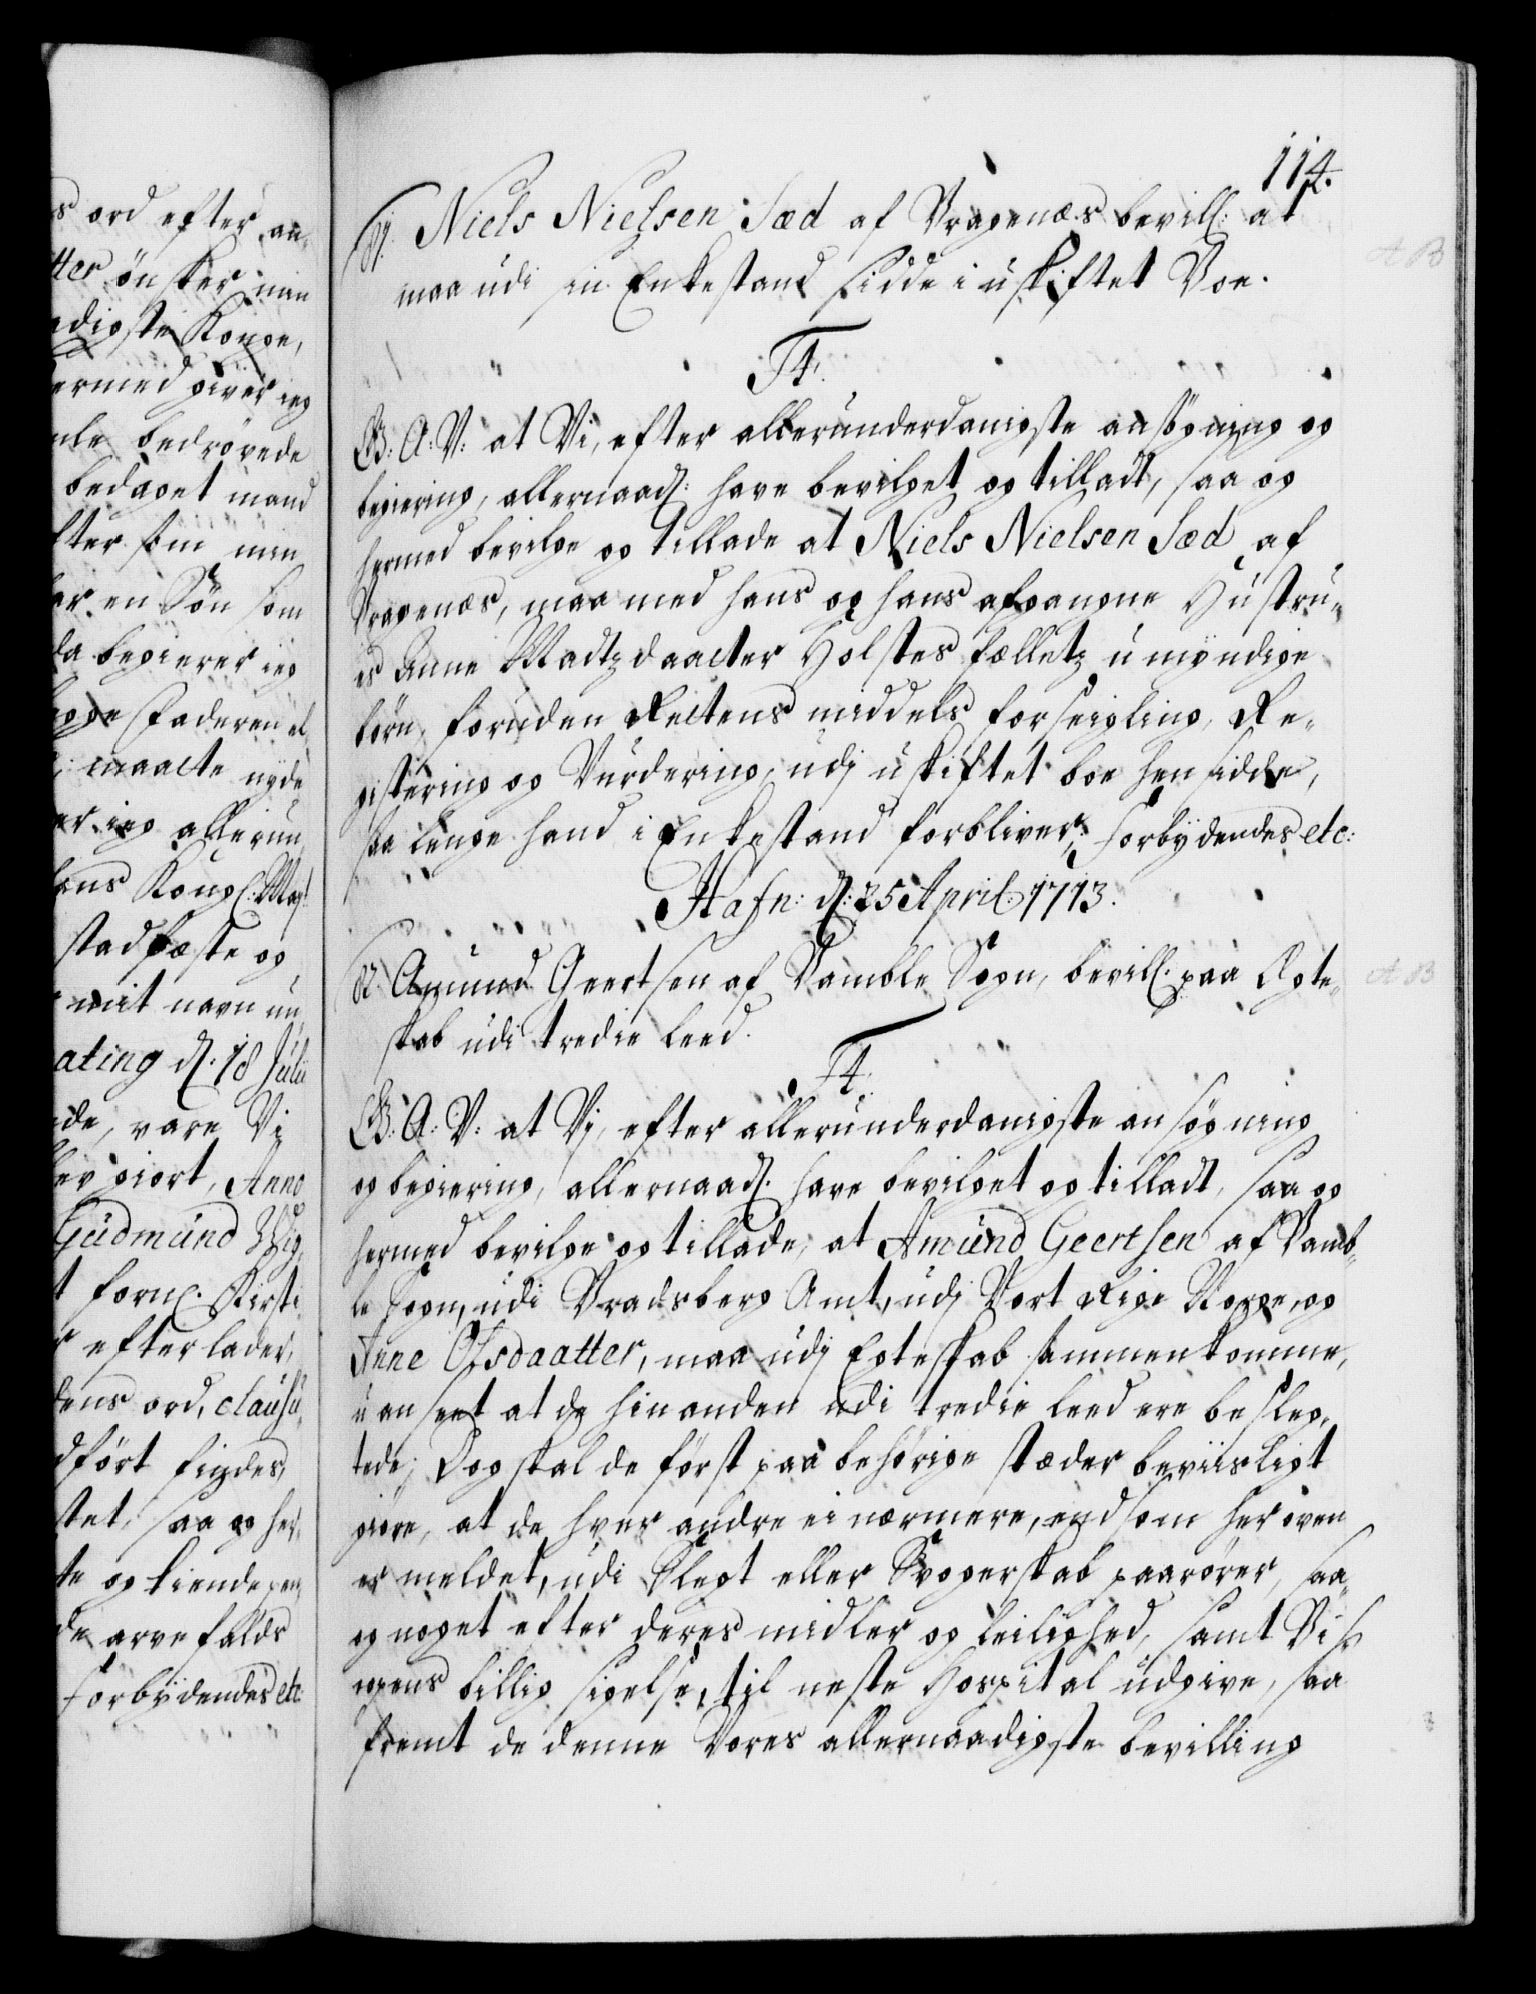 s ord efter an-
tter önsker min
adigste Konge,
hermed giver ieg
mle bedrövede
bedaget mand
lter som min
har en Sön som
da begierer ieg
Faderen el
maatte nyde
er ieg allerun
hans Kongl: May:
stadfæste og
mit navn un
ating d. 18 Julii
de, vare Vi
lev giort, Anno
Gudmund
t forn. Kirsti
r efterlader,
dens ord, clausu-
dfört findes,
tet, saa og her-
te og tiende pen
de arvefalds
forbydendes etc
114.
Niels Nielsen Sæd af Dragenæs bevill: at
maa udi sin Enkestand sidde i uskiftet Boe.
F4.
G: A: V: at Vi, efter allerunderdanigste ansögning og
begiering, allernaad: have bevilget og tilladt, saa og
hermed bevilge og tillade at Niels Nielsen Sæd af
Dragenæs, maa med hans og hans afgangne Hustru-
es Anne Madtzdaatter Holstes fælletz umyndige
börn, foruden Rettens middels forseigling, Re-
gistering og Vurdering, udj uskiftet boe hensidde,
saa lenge hand i Enkestand forbliver; forbydendes etc:
Hafn: d: 25 April: 1713.
Amund Geertsen af Bamble Sogn, bevill: paa Egte-
skab udi tredie leed.
F4.
G: A: V: at Vj, efter allerunderdanigste ansögning
og begiering, allernaad. have bevilget og tilladt, saa og
hermed bevilge og tillade, at Amund Geertsen af Bamb-
le Sogn, udi Bradsberg Amt, udj Vort Rige Norge, og
Anne Olsdaatter, maa udj Egteskab sammenkomme,
uanseet at de hinanden udi tredie leed ere besleg-
tede; Dog skal de först paa behörige stæder beviisligt
giöre, at de hver andre ei nærmere, end som her oven
er meldet, udi Slegt eller Svogerskab paarörer, saa-
og noget efter deres midler og leilighed, samt Bis
opens billig sigelse, til neste Hospital udgive, saa
fremt de denne Vores allernaadigste bevilling